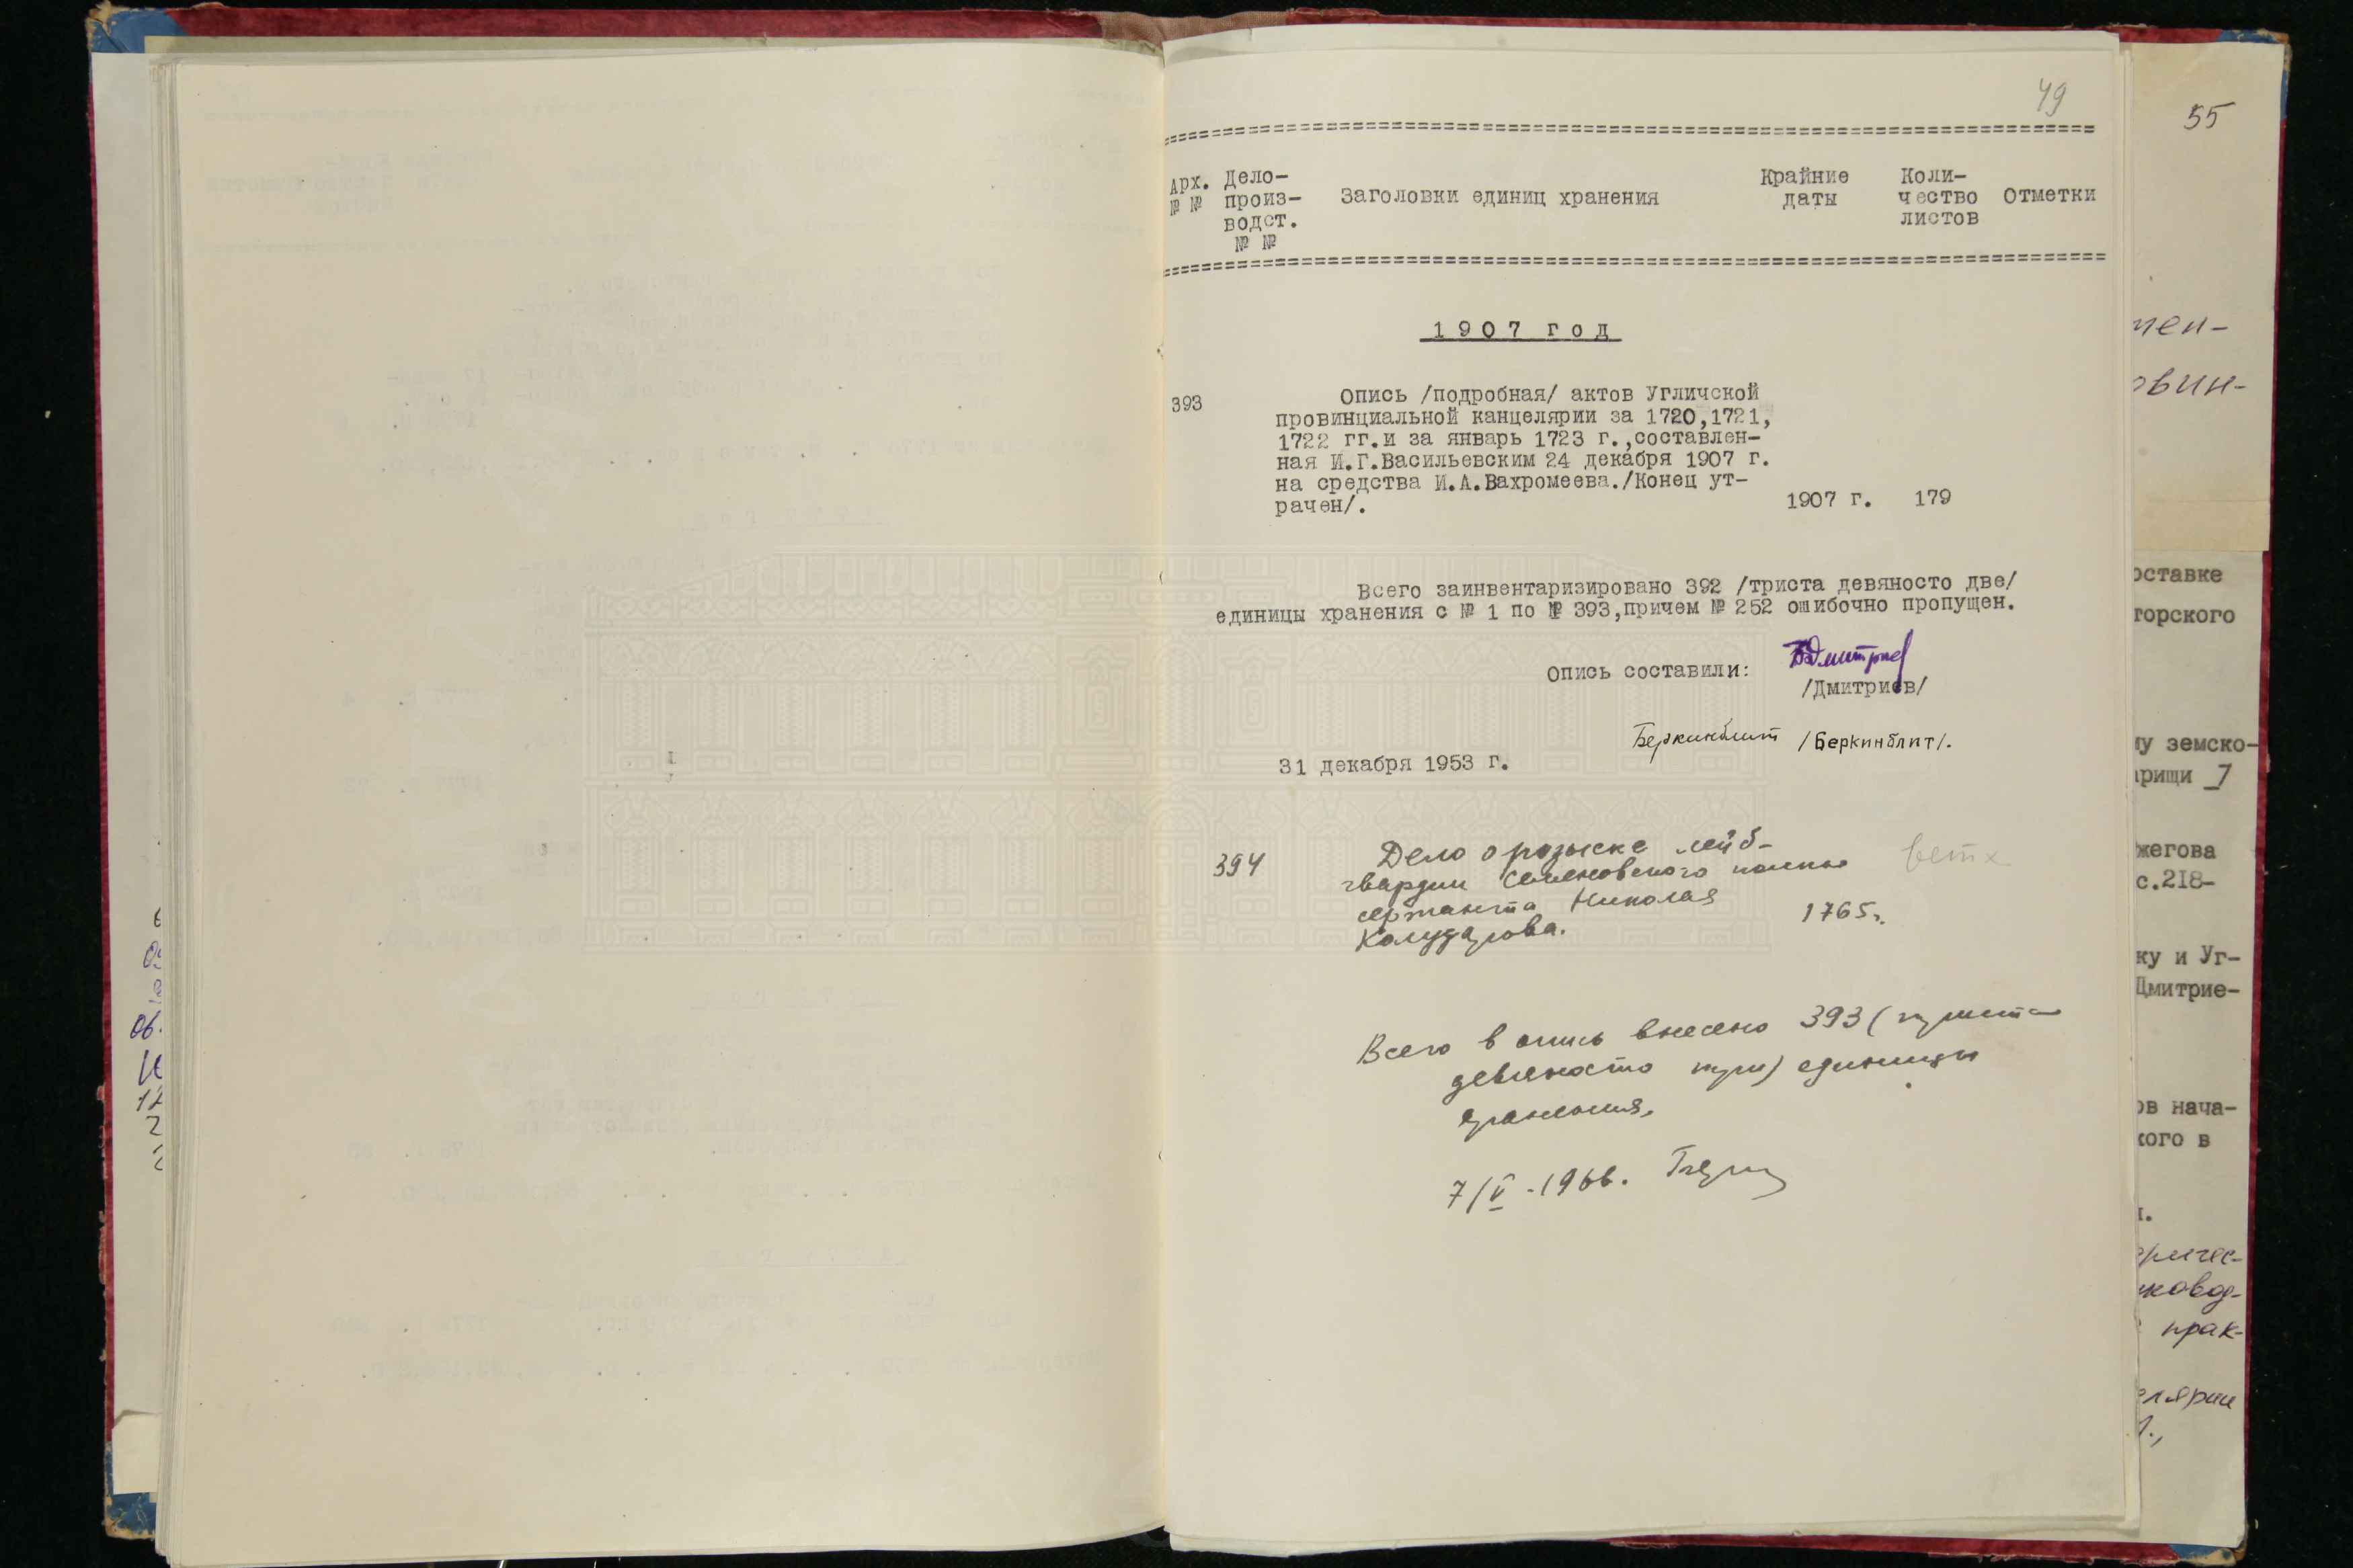 49
Арх. № №
Дело-
произ-
водст.
№ №
Заголовки единиц хранения
Крайние
даты
Коли-
чество
листов
Отметки
1907 год
393
Опись /подробная/ актов Угличской
провинциальной канцелярии за 1720,1721,
1722 гг.и за январь 1723 г.,составлен-
ная И.Г.Васильевским 24 декабря 1907 г.
на средства И.А.Вахромеева./Конец ут-
рачен/.
1907 г. 179
Всего заинвентаризировано 392 /триста девяносто две/
единицы хранения с № 1 по № 393,причем № 252 ошибочно пропущен.
Опись составили:
/Дмитриев/
Беркинблит /Беркинблит/.
31 декабря 1953 г.
394
Дело о розыске лейб-
гвардии Семеновского полка
сержанта Николая
1765г.
ветх
Всего в опись внесено 393 (триста
девяносто три) единицы
хранения.
7/V -1966.
55
мен-
овин-
оставке
торского
му земско-
арищи 7
жегова
с.218-
ку и Уг-
Дмитрие-
ов нача-
кого в
ричес-
ковод-
прак-
елярии